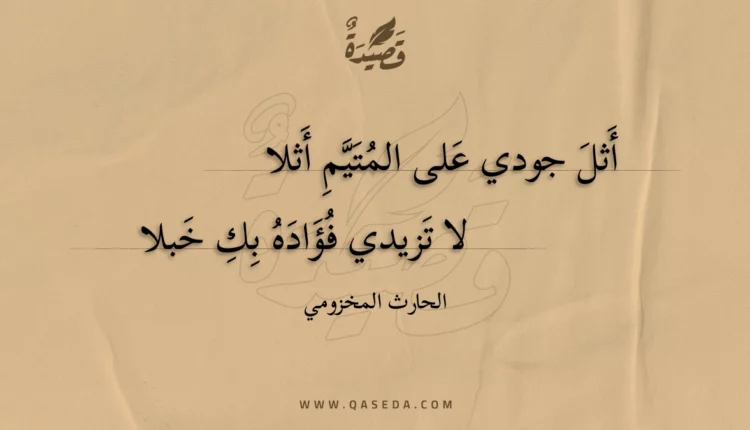 قَصِيدَةٌ
أَثلَ جودي عَلى المُتَيَّمِ أَثلا
لا تَزيدي فُؤَادَهُ بِكِ خَبلا
الحارث المخزومي
WWW.QASEDA.COM